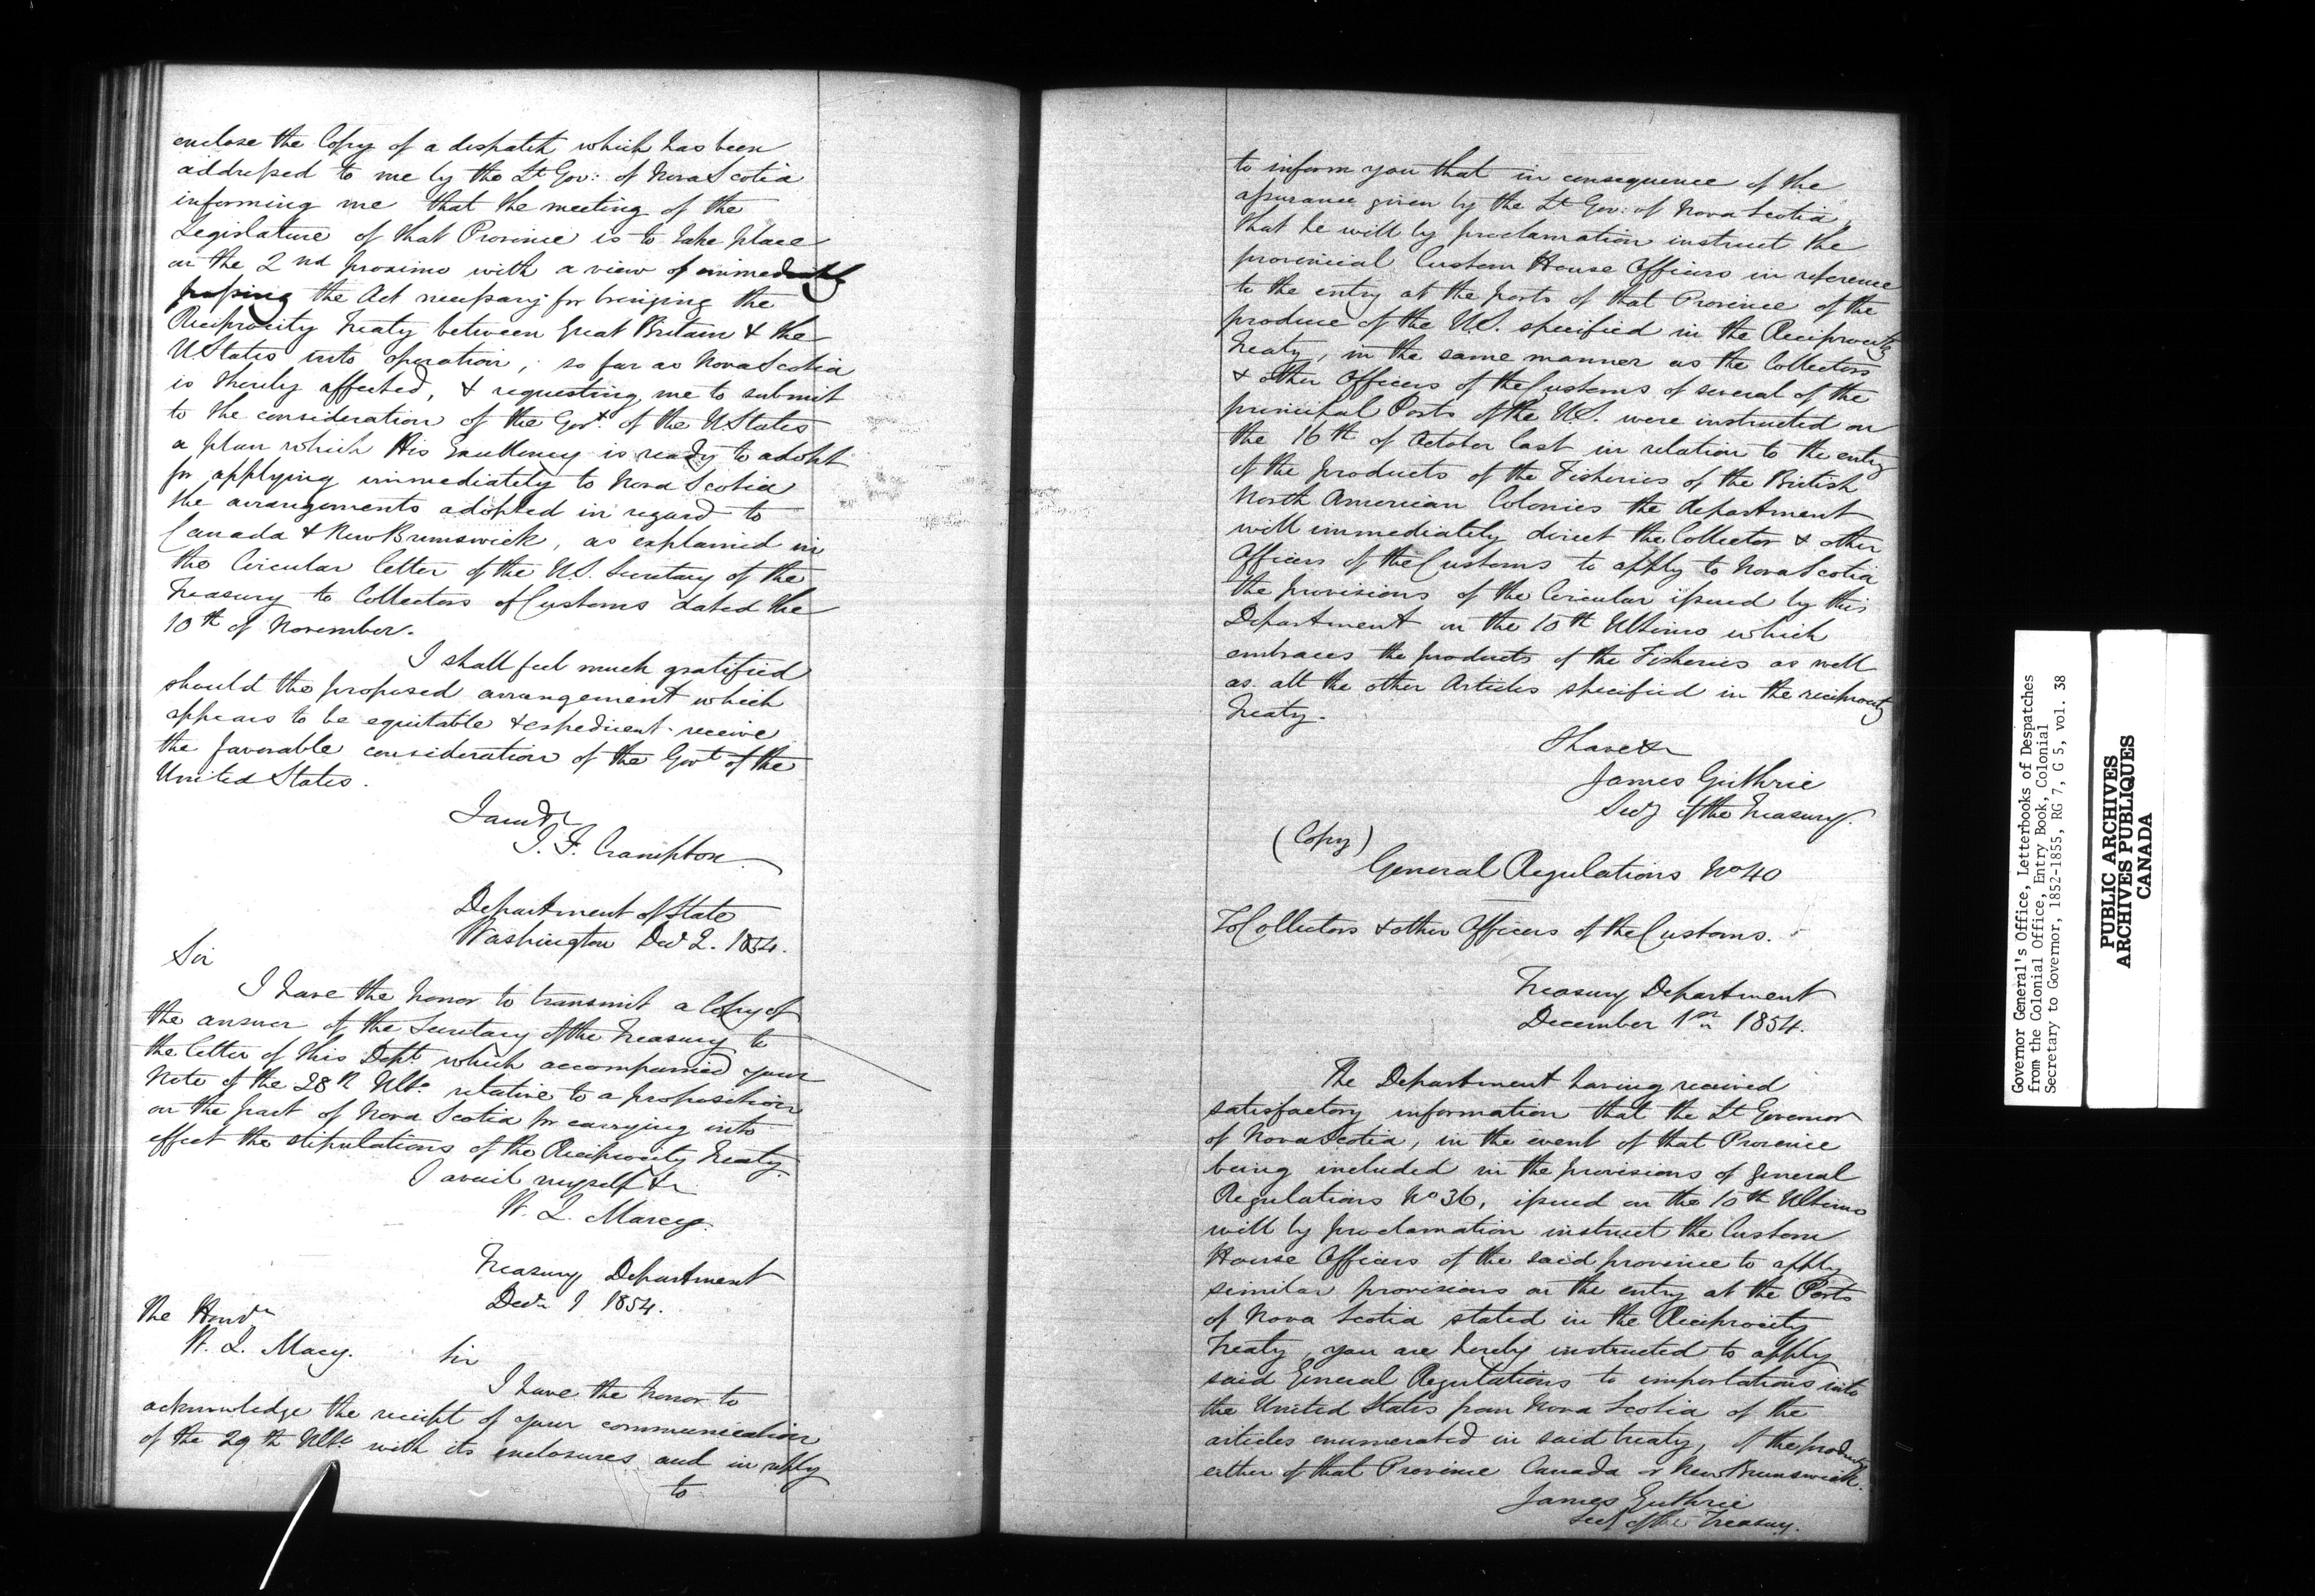 enclose the Copy of a despatch which has been
addressed to me by the Lt Gov: of Nova Scotia
informing me that the meeting of the
Legislature of that Province is to take place
on the 2nd proximo with a view of immediately
passing the Act necessary for bringing the
Reciprocity Treaty between Great Britain & the
U States into operation, so far as Nova Scotia
is thereby affected, & requesting me to submit
to the consideration of the Govt. of the U States
a plan which His Excellency is ready to adopt
for applying immediately to Nova Scotia
the arrangements adopted in regard to
Canada & New Brunswick, as explained in
the Circular letter of the U.S. Secretary of the
Treasury to Collectors of Customs dated the
10th of November.
I shall feel much gratified
should the proposed arrangement which
appears to be equitable & expedient receive
the favorable consideration of the Govt of the
United States.
I am &c
J. F. Crampton
Department of State
Washington Decr 2. 1854.
Sir
I have the honor to transmit a Copy of
the answer of the Secretary of the Treasury to
the letter of this Dept. which accompanied your
Note of the 28th Ulto. relative to a proposition
on the part of Nova Scotia for carrying into
effect the stipulations of the Reciprocity Treaty.
I avail myself &c
W. L. Marcy.
Treasury Department
Decr 1 1854.
The Honble
W. L. Macy. Sir
I have the honor to
acknowledge the receipt of your communication
of the 29th Ulto. with its enclosures and in reply
to
to inform you that in consequence of the
assurance given by the Lt Gov: of Nova Scotia,
that he will by proclamation instruct the
provincial Custom House Officers in reference
to the entry at the ports of that Province of the
produce of the U.S. specified in the Reciprocity
Treaty, in the same manner as the Collectors
& other Officers of the Customs of several of the
principal Ports of the U.S. were instructed on
the 16th of October last in relation to the entry
of the products of the Fisheries of the British
North American Colonies the department
will immediately direct the Collector & other
Officers of the Customs to apply to Nova Scotia
the provisions of the Circular issued by this
Department on the 10th Ultimo which
embraces the products of the Fisheries as well
as all the other Articles specified in the reciprocity
Treaty.
I have &c
James Guthrie
Secy of the Treasury.
(Copy)
General Regulations No 40
To Collectors & other Officers of the Customs.
Treasury Department
December 1st 1854.
The Department having received
satisfactory information that the Lt Governor
of Nova Scotia, in the event of that Province
being included in the provisions of general
Regulations No 36, issued on the 10th Ultimo
will by proclamation instruct the Custom
House Officers of the said province to apply
similar provisions on the entry at the Ports
of Nova Scotia stated in the Reciprocity
Treaty, you are hereby instructed to apply
said General Regulations to importations into
the United States from Nova Scotia of the
articles enumerated in said treaty, of the produce
either of that Province Canada or New Brunswick.
James Guthrie
Secy of the Treasury.
Governor General's Office, Letterbooks of Despatches
from the Colonial Office, Entry Book, Colonial
Secretary to Governor, 1852-1855, RG 7, G 5, vol. 38
PUBLIC ARCHIVES
ARCHIVES PUBLIQUES
CANADA